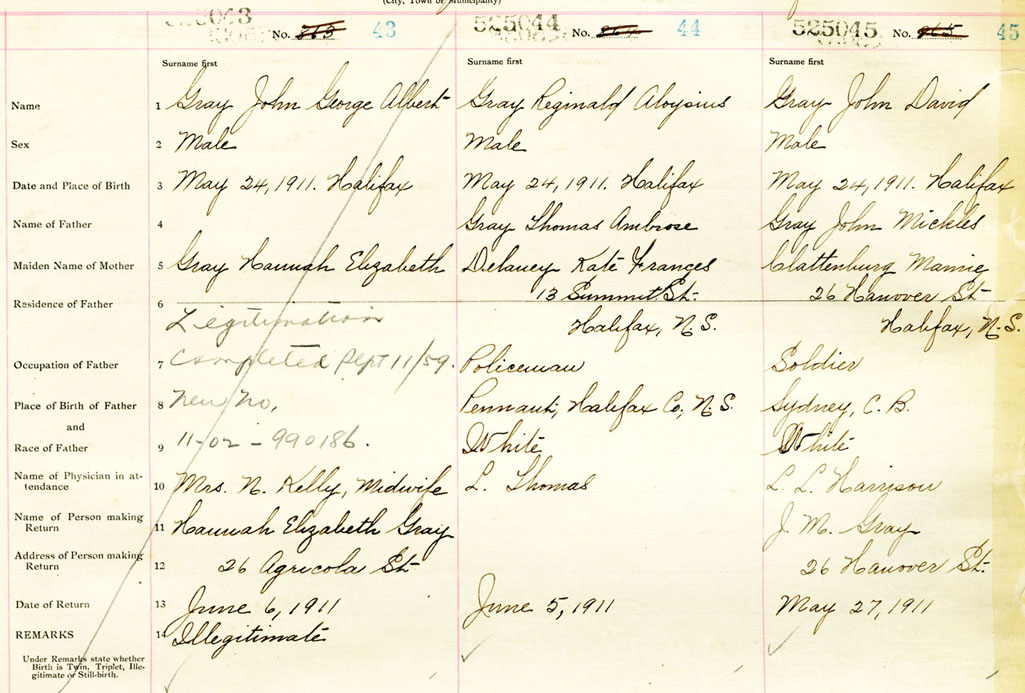 (City, Town or Municipality)
525043 No. 363 43 525044 No. 364 44 525045 No. 365 45
Surname first Surname first Surname first
Name 1 Gray John George Albert Gray Reginald Aloysius Gray John David
Sex 2 Male Male Male
Date and Place of Birth 3 May 24, 1911. Halifax May 24, 1911. Halifax May 24, 1911. Halifax
Name of Father 4 Gray Thomas Ambrose Gray John Mickles
Maiden Name of Mother 5 Gray Hannah Elizabeth Delaney Kate Frances Clattenburg Mamie
Residence of Father 6 13 Summit St. 26 Hanover St
Legitimation Halifax, N.S. Halifax, N.S.
Occupation of Father 7 Completed Sept 11/59. Policeman Soldier
Place of Birth of Father 8 New No. Pennant, Halifax Co, N.S. Sydney, C.B.
and
Race of Father 9 11-02-990186. White White
Name of Physician in at-
tendance 10 Mrs. N. Kelly, Midwife L. Thomas L. L. Harrison
Name of Person making
Return 11 Hannah Elizabeth Gray J. M. Gray
Address of Person making
Return 12 26 Agricola St 26 Hanover St.
Date of Return 13 June 6, 1911 June 5, 1911 May 27, 1911
REMARKS 14 Illegitimate
Under Remarks state whether
Birth is Twin, Triplet, Ille-
gitimate or Still-birth.